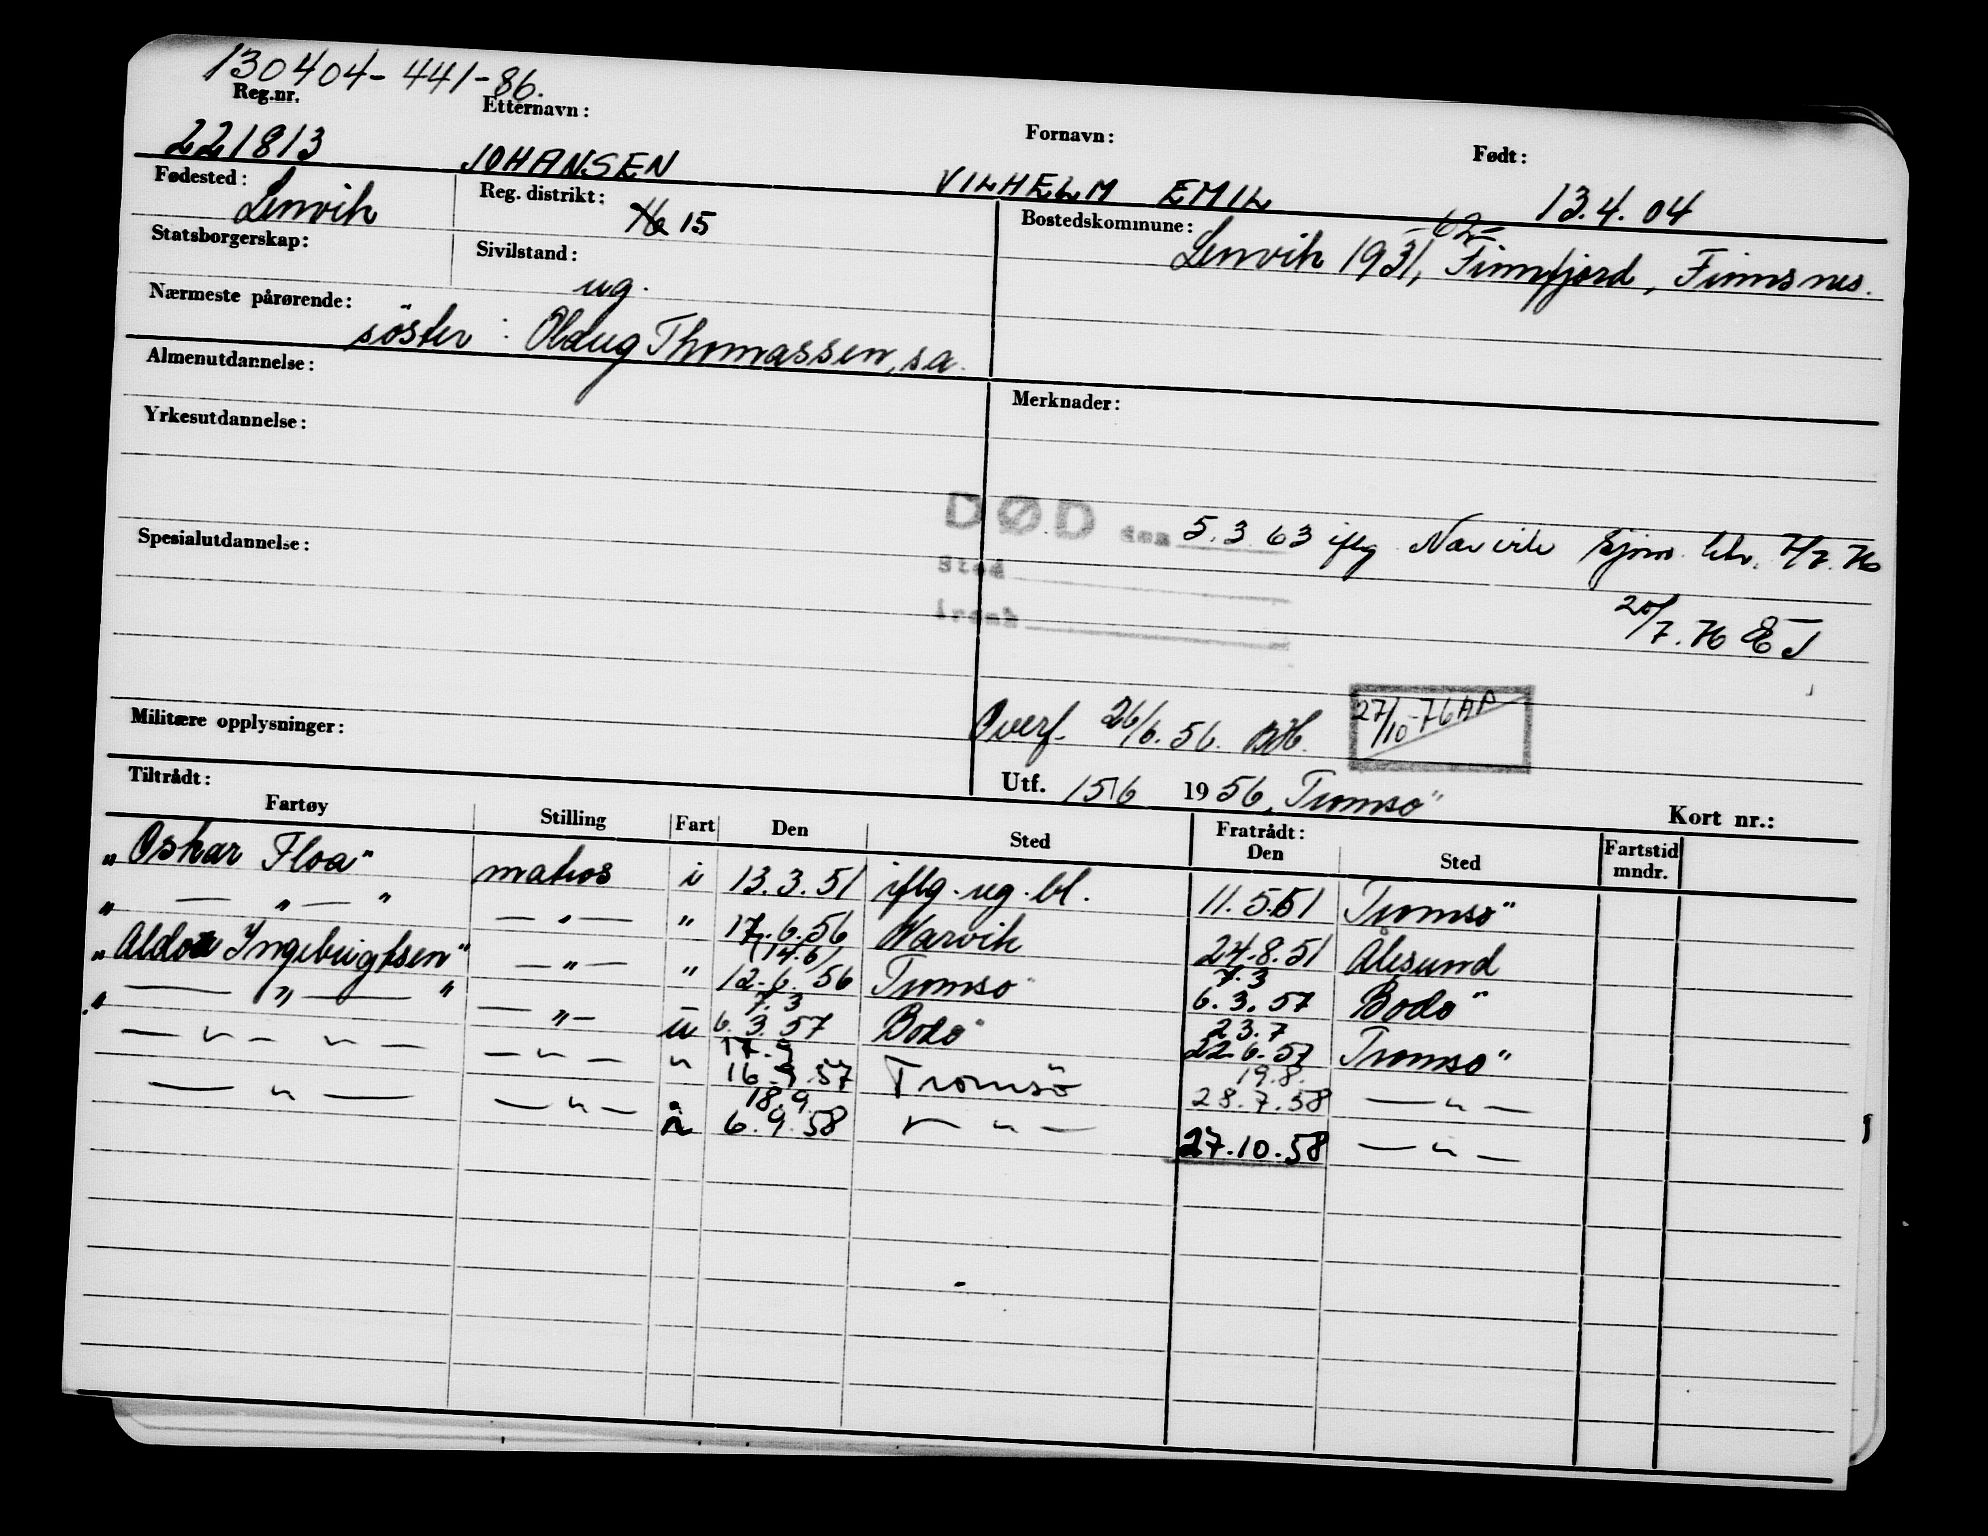 130404-441-86.
Reg.nr. Etternavn: Fornavn: Født:
221813 JOHANSEN VILHELM EMIL 13.4.04
Fødested: Lenvik Reg. distrikt: 15 Bostedskommune: Lenvik 1931, -62- Finnfjord, Finnsnes.
Statsborgerskap: Sivilstand: ug.
Nærmeste pårørende: söster: Oldug Thomassen, sa.
Almenutdannelse: Merknader:
Yrkesutdannelse:
DØD den 5.3 63 iflg Narvik sjøm. 7/7.76
Spesialutdannelse: Sted
Årsak 20/7.76 EJ
Overf. 26/6.56. 27/10-76 AA
Militære opplysninger:
Utf. 15/6 1956, Tromsö Kort nr.:
Tiltrådt: Fratrådt:
Fartøy Stilling Fart Den Sted Den Sted Fartstid mndr.
"Oskar Floa" matros i 13.3.51 iflg. ug. bl. 11.5.51 Tromsö
" — " — " — " — " 17.6.56 (14.6) Narvik 24.8.51 Ålesund
"Aldor Ingebrigtsen" — " — " 12.6.56 Tromsö 7.3 6.3.57 Bodö
" — " — " — " — u 7.3 6.3.57 Bodö 23.7 22.6.57 Tromsö
— " — " — — " — " 17.9 16.9.57 Tromsö 19.8. 28.7.58 — " —
— " — — " — 18.9. 6.9.58 — " — 27.10.58 — " —